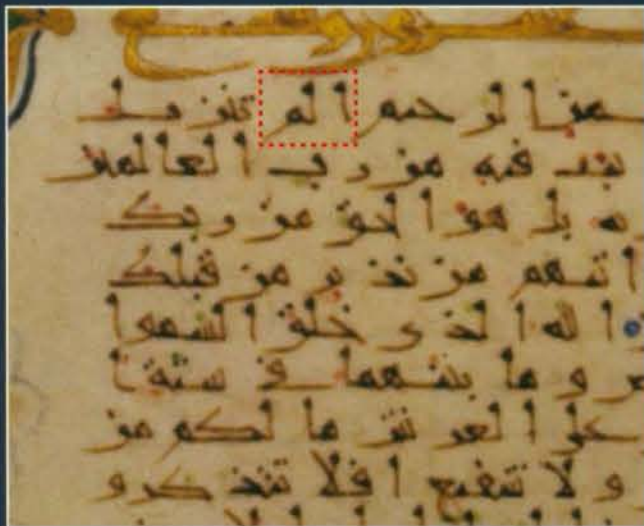 ـمن الرحيم الم تنزيل
ـيب فيه من رب العالمين
ـه بل هو الحق من ربك
اتيهم من نذير من قبلك
الله الذي خلق السموا
ـر و ما بينهما في ستة ا
على العرش ما لكم من
و لا شفيع افلا تتذكرو